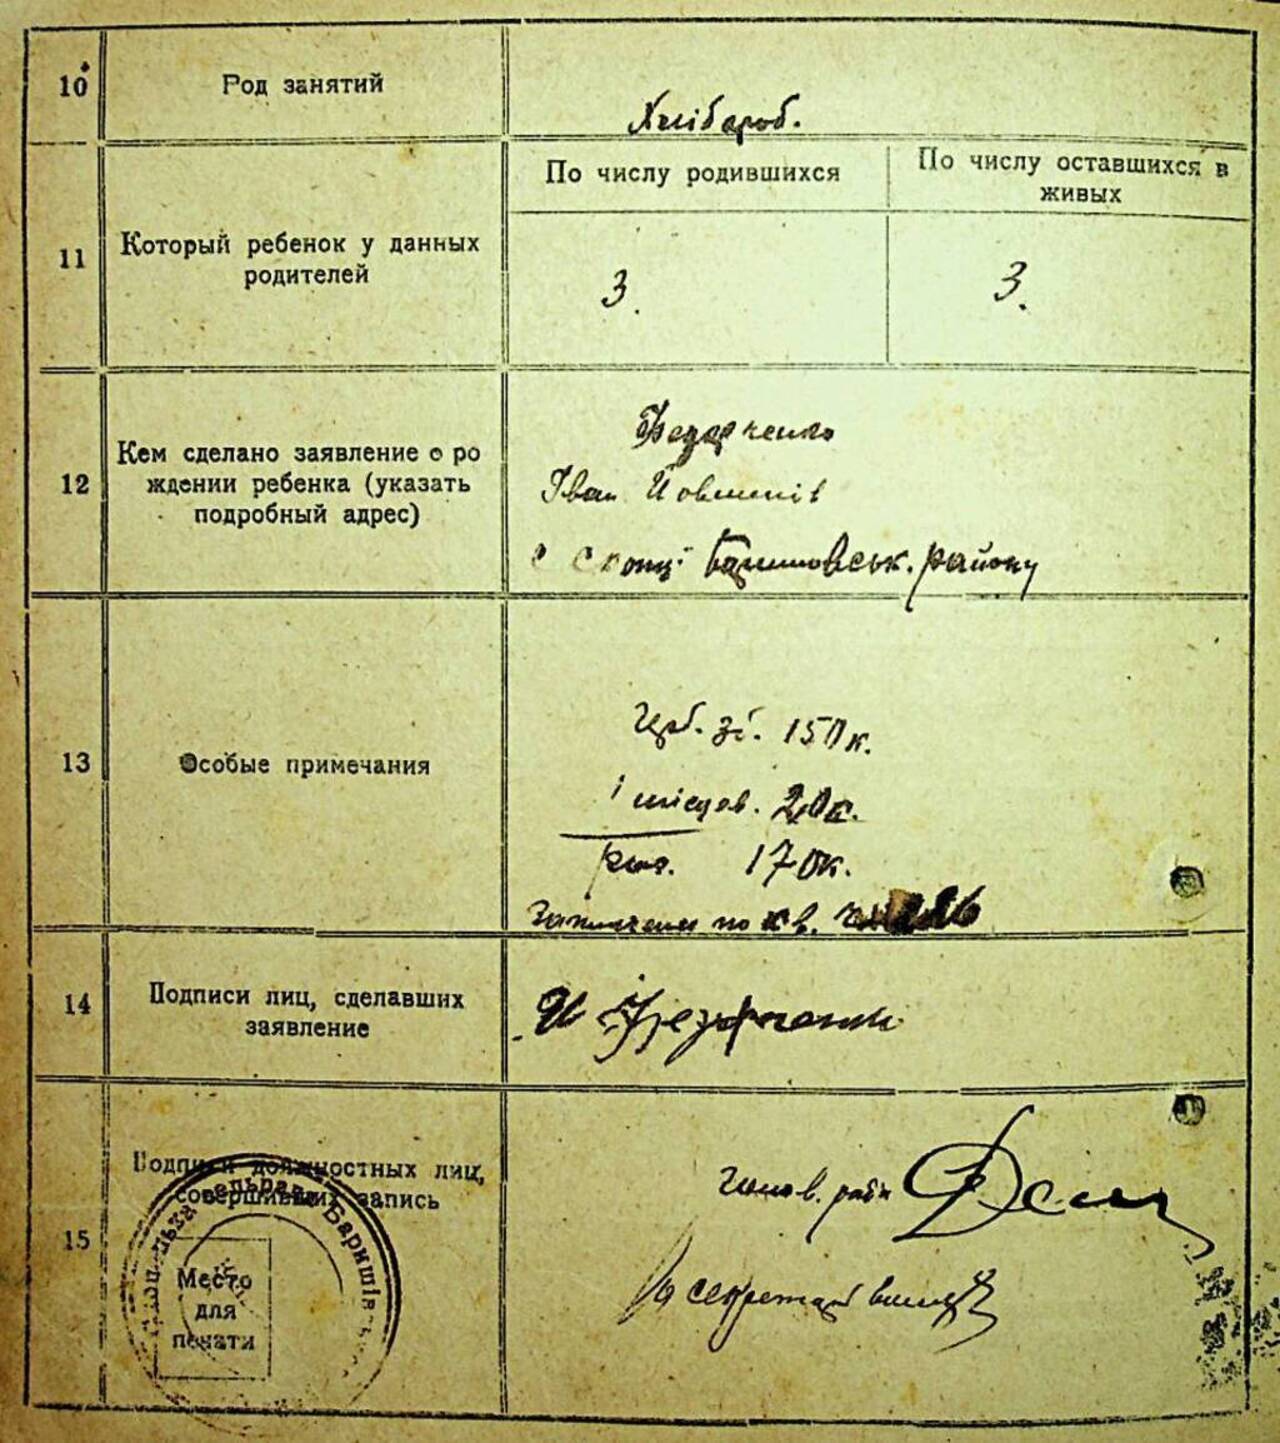 10
Род занятий
Хлібороб.
11
Который ребенок у данных
родителей
По числу родившихся
По числу оставшихся в
живых
3.
3.
12
Кем сделано заявление о ро
ждении ребенка (указать
подробный адрес)
Федорченко
Іван
районy
13
Особые примечания
150 к.
і місцев. 20 к.
170 к.
по кв.
14
Подписи лиц, сделавших
заявление
И Федорченко
15
Подписи должностных лиц,
совершивших запись
Место
для
печати
сельрада Баришів
секретар